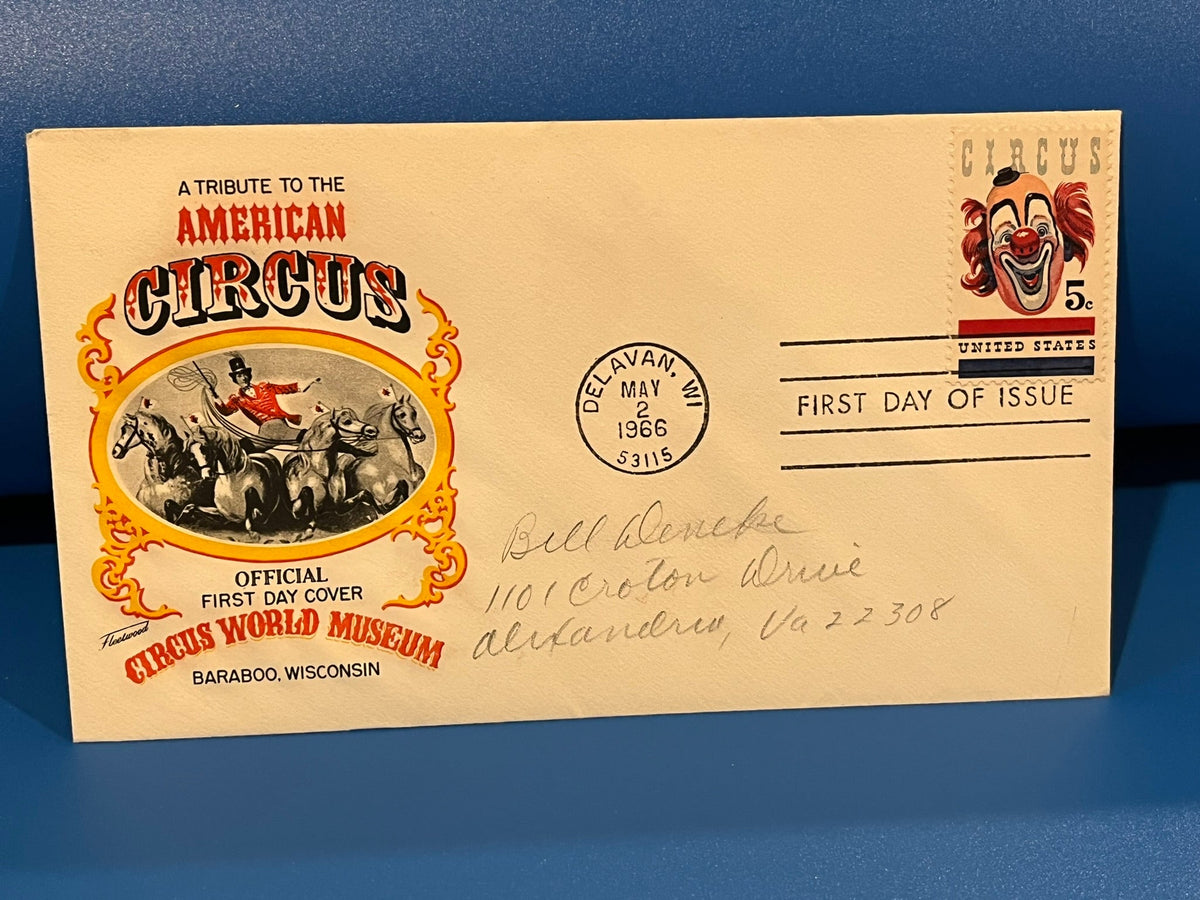 A TRIBUTE TO THE
AMERICAN
CIRCUS
OFFICIAL
FIRST DAY COVER
CIRCUS WORLD MUSEUM
BARABOO, WISCONSIN
Fleetwood
CIRCUS
5c
UNITED STATES
DELAVAN, WI
MAY
2
1966
53115
FIRST DAY OF ISSUE
Bill Deneke
1101 Croton Drive
Alexandria, Va 22308